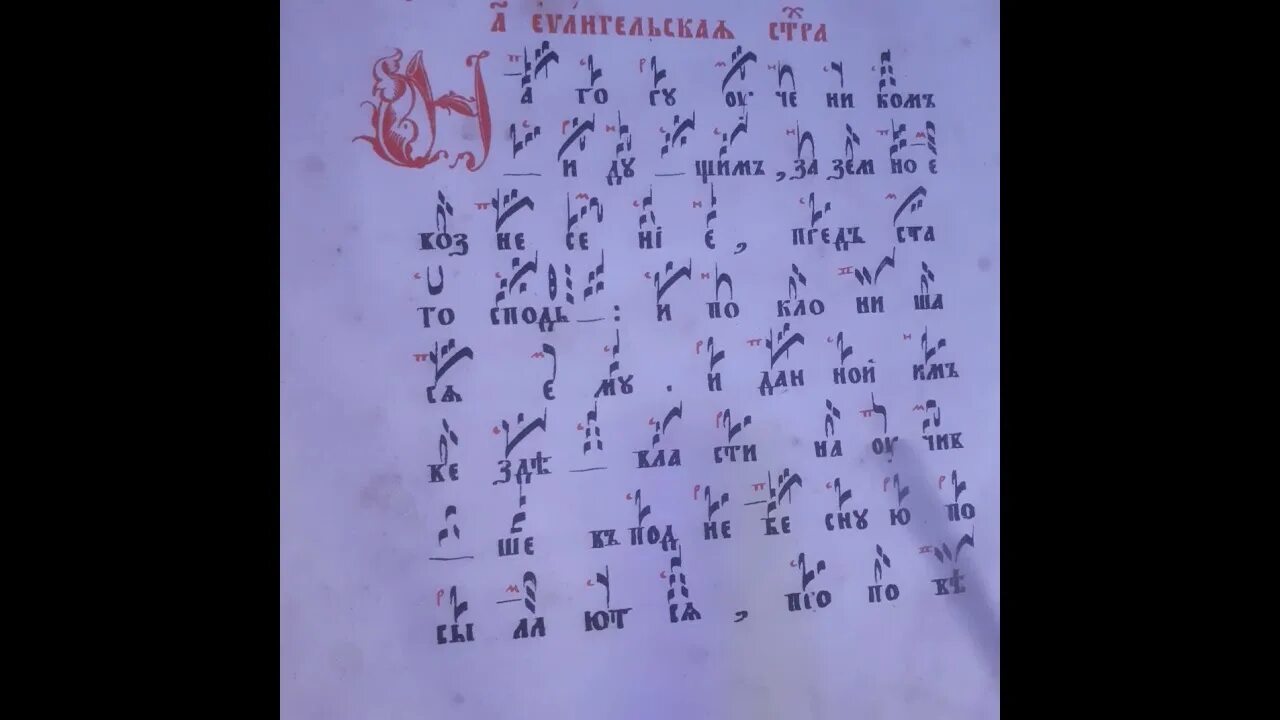 а҃ еѵⷢ҇лительскаѧ стⷯра
На го ру оу че ни комъ
и ду щимъ , за зем но е
воз не се ні е , предъ ста
го сподь : и по кло ни ша
сѧ е му . и дан ной имъ
ве здѣ вла сти на оу чив
ше въ под не бе сну ю по
сы ла ют сѧ , про по вѣ